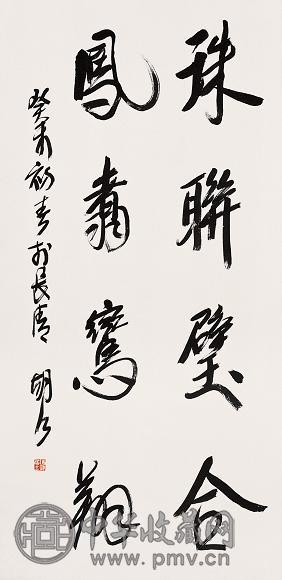 珠聯璧合
鳳翥鸞翔
癸未初春於長清 胡公
中华收藏网
www.pmv.cn